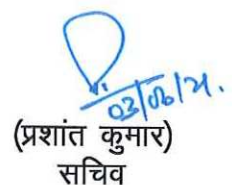 03/06/21.
(प्रशांत कुमार)
सचिव